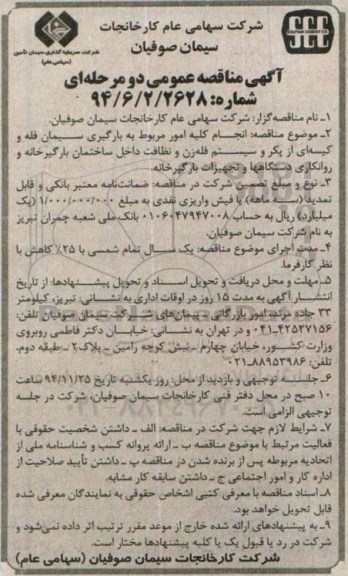 شرکت سهامی عام کارخانجات
سیمان صوفیان
SCC
شرکت سرمایه گذاری سیمان تأمین
(سهامی عام)
آگهی مناقصه عمومی دو مرحله‌ای
شماره: ۹۴/۶/۲/۲۶۲۸
۱ـ نام مناقصه‌گزار: شرکت سهامی عام کارخانجات سیمان صوفیان.
۲ـ موضوع مناقصه: انجام کلیه امور مربوط به بارگیری سیمان فله و
کیسه‌ای از پکر و سیستم فله‌زن و نظافت داخل ساختمان بارگیرخانه و
روانکاری دستگاهها و تجهیزات بارگیرخانه.
۳ـ نوع و مبلغ تضمین شرکت در مناقصه: ضمانت‌نامه معتبر بانکی و قابل
تمدید (سه ماهه) یا فیش واریزی نقدی به مبلغ ۱/۰۰۰/۰۰۰/۰۰۰ (یک
میلیارد) ریال به حساب ۰۱۰۶۰۴۷۹۴۷۰۰۸ بانک ملی شعبه چمران تبریز
به نام شرکت سیمان صوفیان.
۴ـ مدت اجرای موضوع مناقصه: یک سال تمام شمسی با ۲۵٪ کاهش با
نظر کارفرما.
۵ـ مهلت و محل دریافت و تحویل اسناد و تحویل پیشنهادها: از تاریخ
انتشار آگهی به مدت ۱۵ روز در اوقات اداری به نشانی: تبریز، کیلومتر
۳۳ جاده مرند، امور بازرگانی ـ پیمان‌های شرکت سیمان صوفیان تلفن:
۴۲۵۲۷۱۵۶ـ۰۴۱ و در تهران به نشانی: خیابان دکتر فاطمی روبروی
وزارت کشور، خیابان چهارم ـ نبش کوچه رامین ـ پلاک۲ ـ طبقه دوم،
تلفن: ۸۸۹۵۳۹۸۶ـ۰۲۱
۶ـ جلسه توجیهی و بازدید از محل: روز یکشنبه تاریخ ۹۴/۱۱/۲۵ ساعت
۱۰ صبح در محل دفتر فنی کارخانجات سیمان صوفیان، شرکت در جلسه
توجیهی الزامی است.
۷ـ شرایط لازم جهت شرکت در مناقصه: الف ـ داشتن شخصیت حقوقی با
فعالیت مرتبط با موضوع مناقصه ب ـ ارائه پروانه کسب و شناسنامه ملی از
اتحادیه مربوطه پس از برنده شدن در مناقصه پ ـ داشتن تأیید صلاحیت از
اداره کار و امور اجتماعی ج ـ داشتن سابقه کار مشابه.
۸ـ اسناد مناقصه با معرفی کتبی اشخاص حقوقی به نمایندگان معرفی شده
قابل تحویل خواهد بود.
۹ـ به پیشنهادهای ارائه شده خارج از موعد مقرر ترتیب اثر داده نمی‌شود و
شرکت در رد یا قبول یک یا کلیه پیشنهادها مختار است.
شرکت کارخانجات سیمان صوفیان (سهامی عام)